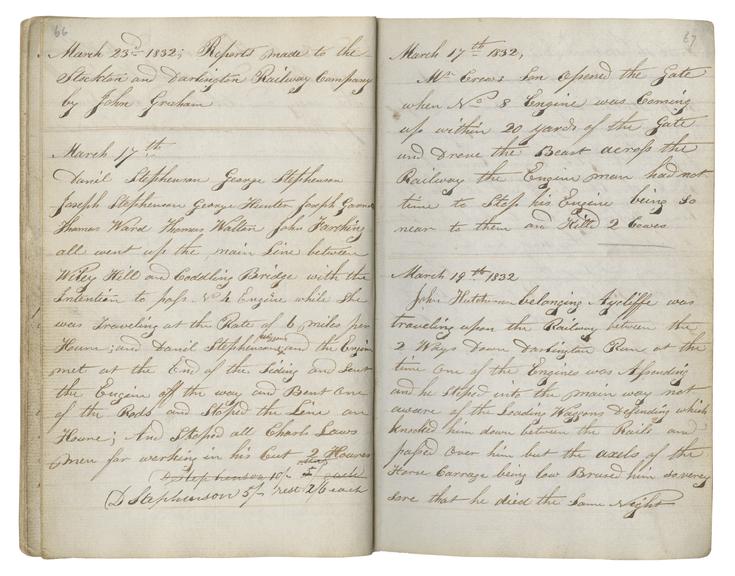 66
March 23rd 1832; Reports made to the
Stockton and Darlington Railway Company
by John Graham
March 17th
Daniel Stephenson George Stephenson
Joseph Stephenson George Hunter Joseph
Thomas Ward Thomas Walton John
all went up the main Line between
Hill and Bridge with the
Intention to pass No 4 Engine while She
was Traveling at the Rate of 6 miles per
Houre; and Daniel Stephensons waggons and the Engine
met at the End of the Siding and Sent
the Engine off the way and Bent One
of the Rods and Stoped the Line an
Houre; And Stoped all Charls Laws
men for working in his Cut 2 Houres
D Stephenson 10/- 5 each
(D Stephenson 5/- rest 2/6 each
67
March 17th 1832,
Mr Son opened the Gate
when No 8 Engine was Coming
up within 20 yards of the Gate
and Drove the Beast across the
Railway the Engine man had not
time to Stop his Engine being so
near to them and Killd 2 Cowes
March 19th 1832
John Hutchinson belonging Aycliffe was
traveling upon the Railway between the
2 Ways Down Darlington Run at the
time One of the Engines was Assending
and he Steped into the main way not
aware of the Leading Waggons Desending which
knocked him down between the Rails and
passed Over him but the axels of the
Horse Carrage being low Brused him so very
sore that he died the Same Night